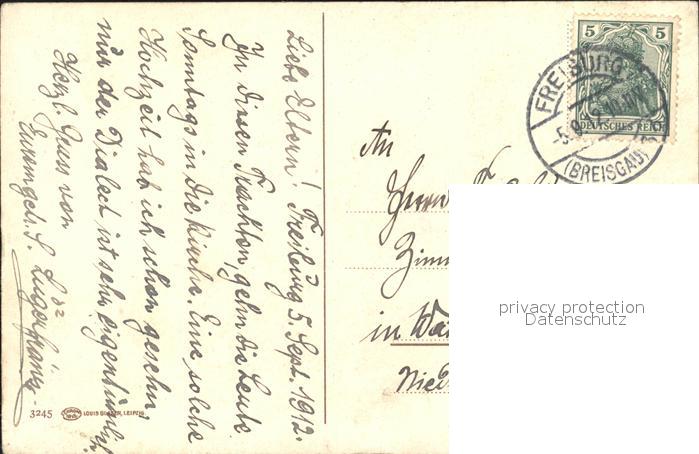 Liebe Eltern! Freiburg 5. Sept. 1912.
In diesen Trachten, gehn die Leute
Sonntags in die Kirche. Eine solche
Hochzeit hab ich schon gesehn,
nur der Dialect ist sehr eigentümlich.
Herzl. Gruss von
Eurem
3245 LOUIS GLASER, LEIPZIG
5 5
DEUTSCHES REICH
FREIBURG
(BREISGAU)
An
Herrn
in
privacy protection
Datenschutz